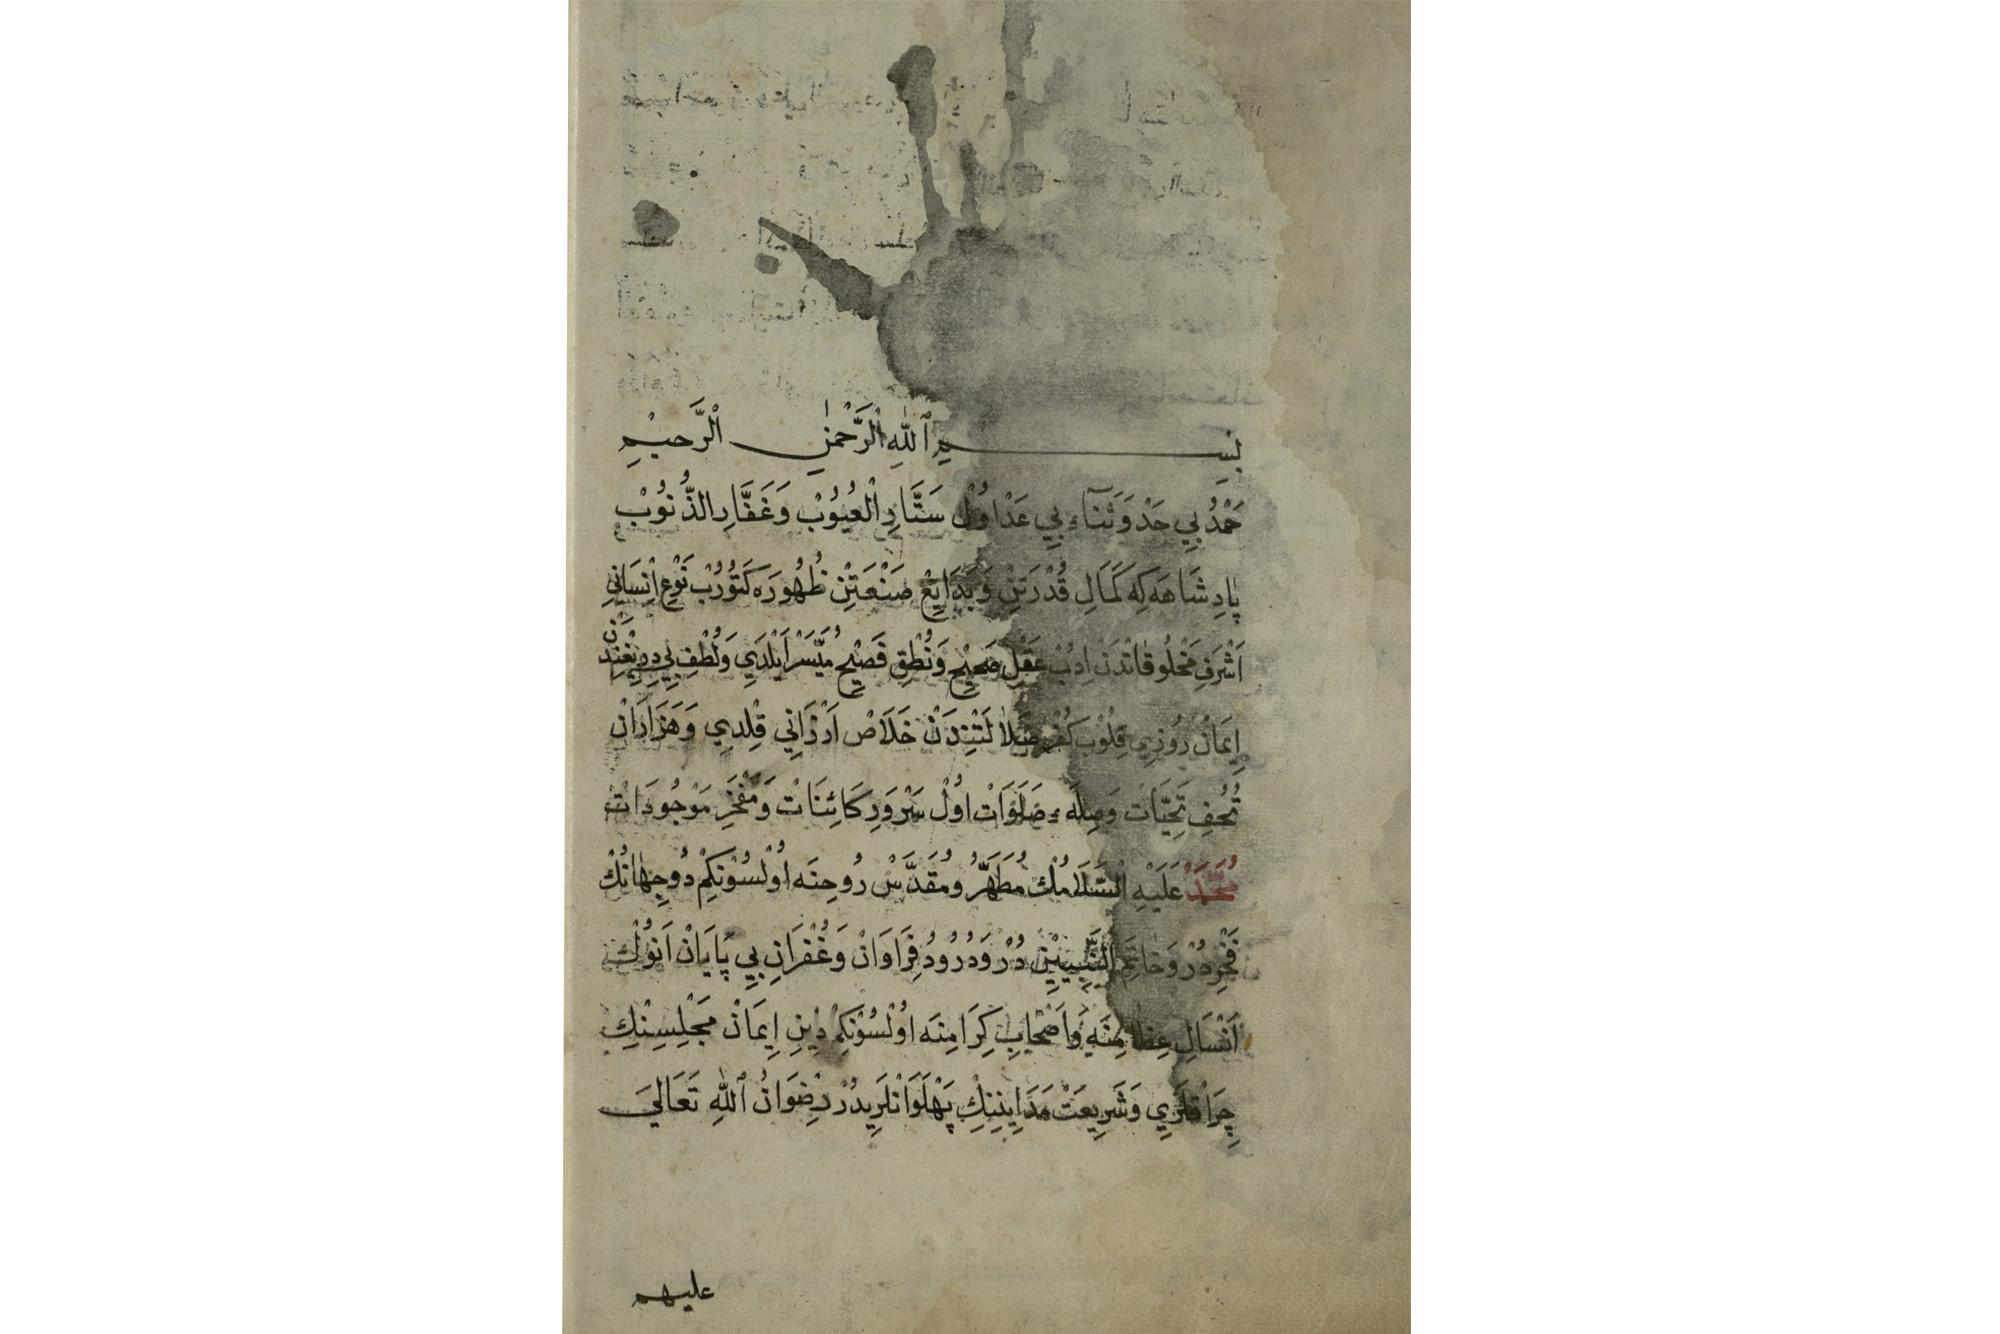 بِسْمِ ٱللّٰهِ ٱلْرَّحْمٰنِ ٱلْرَّحيْمِ
حَمْدُ بِي حَدْ وَ ثَنَاءِ بِي عَدْ اوُلْ سَتَّارِ الْعُيُوُبْ وَ غَفَّارِ الذُّنوُبْ
پادِشَاهَه كِه كَمَالِ قُدْرَتِنْ وَ بَدَايِعْ صَنْعَتِنْ ظُهُورَه كَتوُرُبْ نَوْعِ اِنْسَانِي
اَشْرَفِ مَخْلُوقاتْدَنْ اِدُبْ عَقْلِ صَحِيْحِ وَ نُطْقِ فَصِيْحِ مُيَسَّرْ اَيْلَدِي وَ لُطْفِ بِي دِرِيْغِنْدَنْ
اِيمَانْ رُوُزِي قِلُوبْ كُفْرِ ضَلاٰلَتْنِدَنْ خَلَاصْ اَرْزَانِي قِلْدِي وَ هَزَارَانْ
تُحَفِ تَحِيَّاتْ وَ صِلَهءِ صَلَوَاتْ اوُلْ سَرْوَرِ كَائِنَاتْ وَ مَفْخَرِ مَوْجُودَاتْ
مُحَمَّدْ عَلَيْهِ السَّلَامُكْ مُطَهَّرْ وَ مُقَدَّسْ رُوحِنَه اُوْلْسُوْنكِمْ دُو جِهَانُكْ
فَخْرِدُرْ وَ خَاتَمِ النَّبِيِّيْنِ دُرْ وَ دُرُودِ فِرَاوَانْ وَ غُفْرَانِ بِي پَايَانْ اَنوُكْ
اَنْسَالِ عِظَامِنَه وَ اَصْحَابِ كِرَامِنَه اوُلْسُوْنكِمْ دِينِ اِيمَانْ مَجْلِسِنْكِ
چِرَاقْلَرِي وَ شَرِيعَتْ مَدَايِنِنِكْ پَهْلَوَانْلَرِيدُرْ رِضْوَانُ ٱللّٰهِ تَعَالَي
عليهم